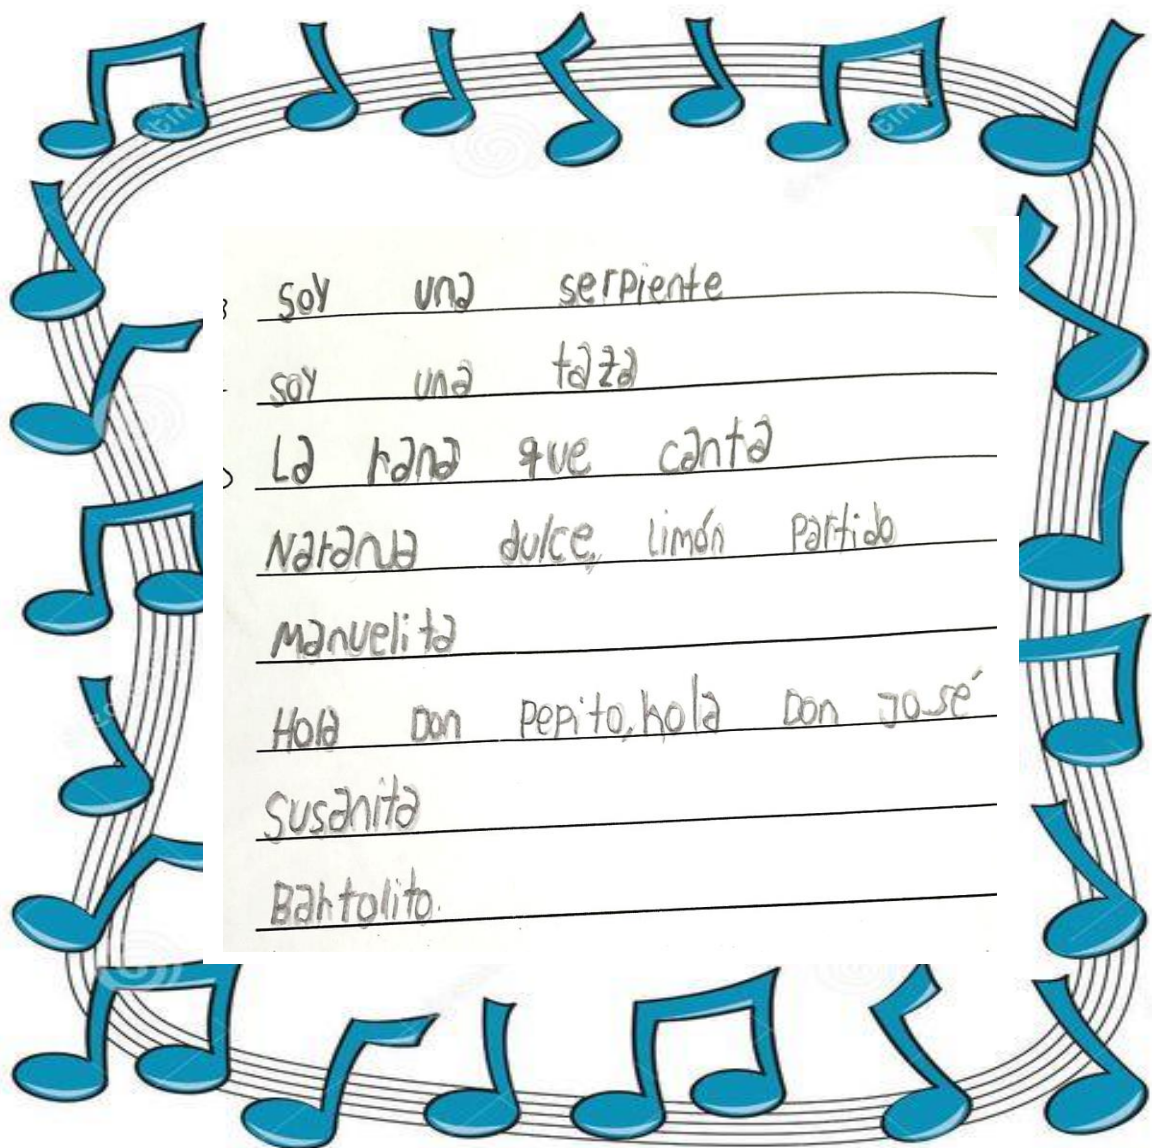 Soy una serpiente
soy una taza
La rana que canta
Naranja dulce, limón partido
Manuelita
Hola Don Pepito, hola Don José
Susanita
Bartolito.